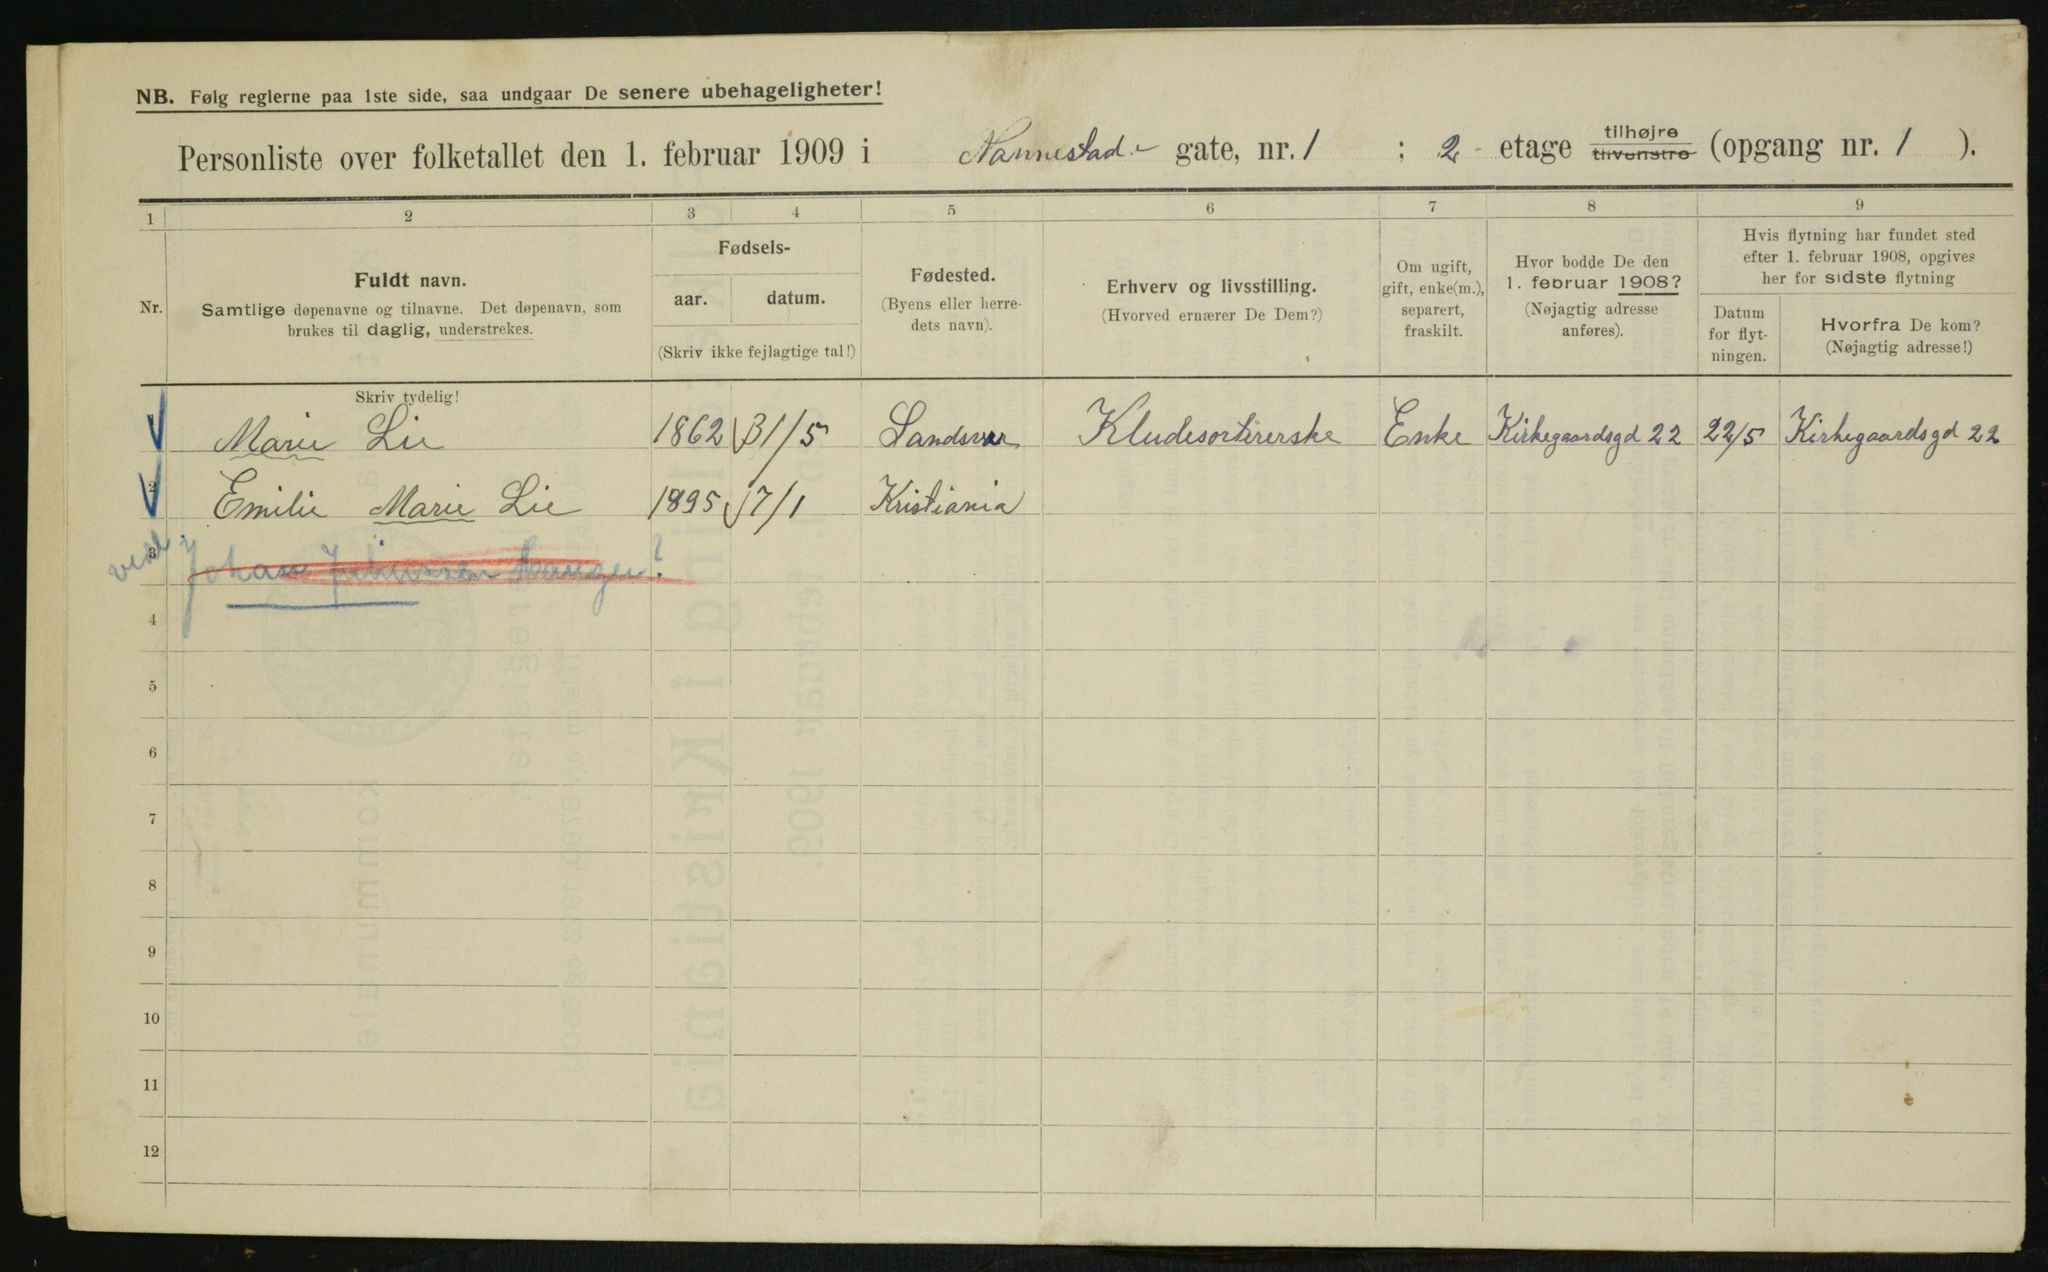 NB. Følg reglerne paa 1ste side, saa undgaar De senere ubehageligheter!
Personliste over folketallet den 1. februar 1909 i Nannestad- gate, nr. 1 ; 2 - etage tilhøjre tilvenstre (opgang nr. 1 ).
1 2 3 4 5 6 7 8 9
Nr.
Fuldt navn.
Samtlige døpenavne og tilnavne. Det døpenavn, som
brukes til daglig, understrekes.
Skriv tydelig!
Fødsels-
aar. datum.
(Skriv ikke fejlagtige tal!)
Fødested.
(Byens eller herre-
dets navn).
Erhverv og livsstilling.
(Hvorved ernærer De Dem?)
Om ugift,
gift, enke(m.),
separert,
fraskilt.
Hvor bodde De den
1. februar 1908?
(Nøjagtig adresse
anføres).
Hvis flytning har fundet sted
efter 1. februar 1908, opgives
her for sidste flytning
Datum
for flyt-
ningen.
Hvorfra De kom?
(Nøjagtig adresse!)
Marie Lie 1862 31/5 Sandsvær Kludesortererske Enke Kirkegaardsgd 22 22/5 Kirkegaardsgd 22
2 Emilie Marie Lie 1895 7/1 Kristiania
3 Johan ?
4
5
6
7
8
9
10
11
12